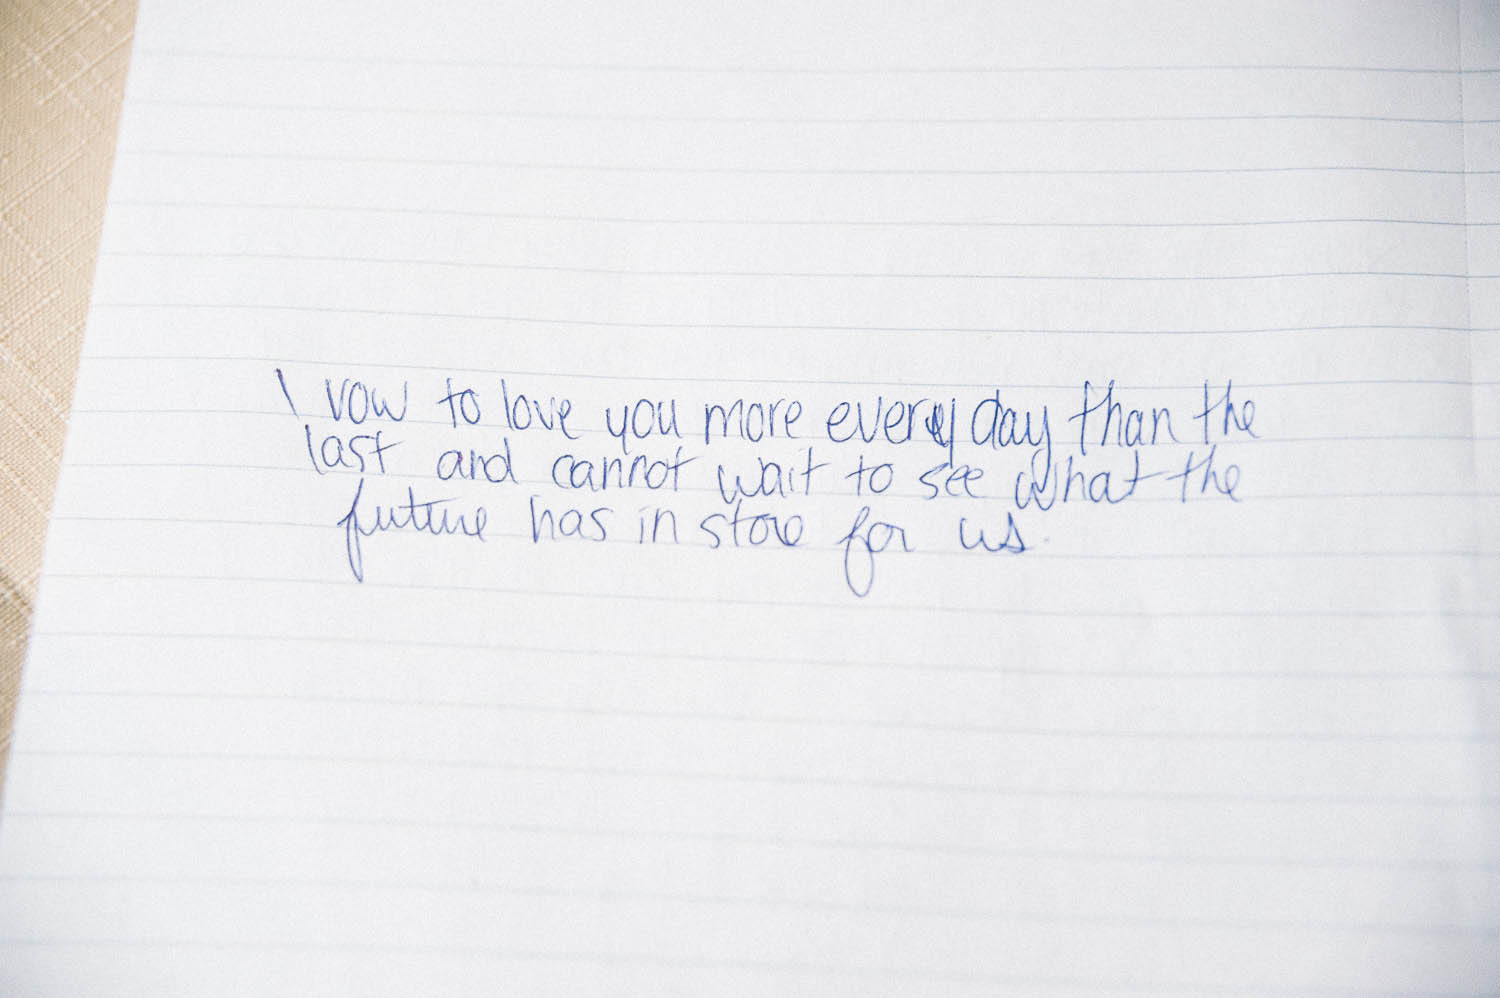 I vow to love you more every day than the
last and cannot wait to see what the
future has in store for us.